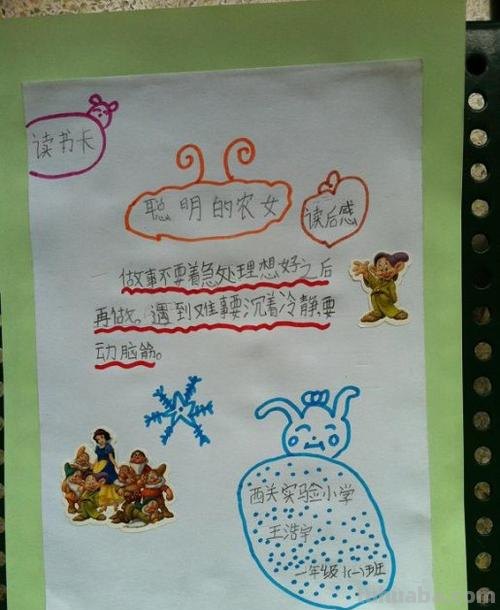 读书卡
聪明的农女
读后感
做事不要着急处理想好之后
再做，遇到难事要沉着冷静要
动脑筋。
西关实验小学
王浩宇
一年级（一）班